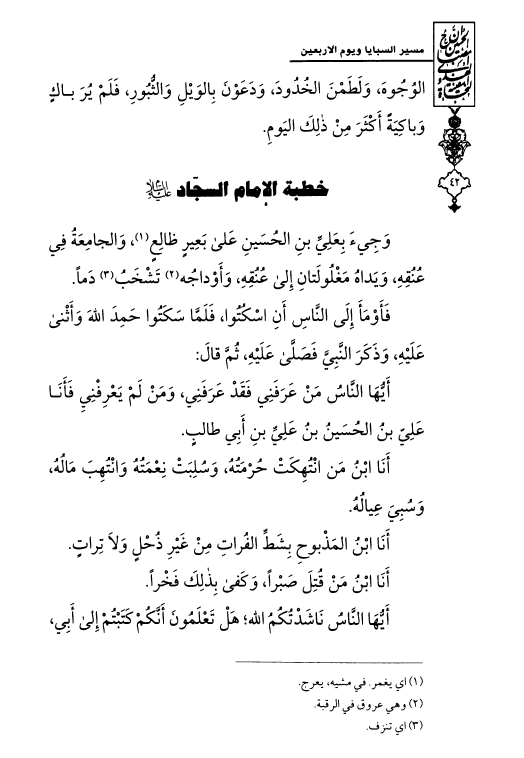 مسير السبايا ويوم الاربعين
الوُجُوهَ، وَلَطَمْنَ الخُدُودَ، وَدَعَوْنَ بِالوَيْلِ وَالثُّبُورِ، فَلَمْ يُرَ بـاكٍ
وَباكِيَةً أَكْثَرَ مِنْ ذٰلِكَ اليَومِ.
٤٢
خطبة الإمام السجّاد
وَجِيءَ بِعَلِيِّ بنِ الحُسَينِ عَلىٰ بَعِيرٍ ظالِعٍ(١)، وَالجامِعَةُ فِي
عُنُقِهِ، وَيَداهُ مَغْلُولَتانِ إلىٰ عُنُقِهِ، وَأَوْداجُه(٢) تَشْخَبُ(٣) دَماً.
فَأَوْمَأَ إِلَى النَّاسِ أَنِ اسْكُتُوا، فَلَمَّا سَكَتُوا حَمِدَ اللهَ وَأَثْنىٰ
عَلَيْهِ، وَذَكَرَ النَّبِيَّ فَصَلَّىٰ عَلَيْهِ، ثُمَّ قالَ:
أَيُّهَا النَّاسُ مَنْ عَرَفَنِي فَقَدْ عَرَفَنِي، وَمَنْ لَمْ يَعْرِفْنِي فَأَنَـا
عَلِيّ بنُ الحُسَينُ بنُ عَلِيِّ بنِ أَبِي طالبٍ.
أَنَا ابْنُ مَن انْتُهِكَتْ حُرْمَتُهُ، وَسُلِبَتْ نِعْمَتُهُ وَانْتُهِبَ مَالُهُ،
وَسُبِيَ عِيالُهُ.
أَنَا ابْنُ المَذْبوحِ بِشَطِّ الفُراتِ مِنْ غَيْرِ ذُحْلٍ وَلاَ تِراتٍ.
أَنَا ابْنُ مَنْ قُتِلَ صَبْراً، وَكَفىٰ بِذٰلِكَ فَخْراً.
أَيُّهَا النَّاسُ نَاشَدْتُكُمُ الله؛ هَلْ تَعْلَمُونَ أَنَّكُمْ كَتَبْتُمْ إلىٰ أَبِي،
(١) اي يغمر. في مشيه، يعرج.
(٢) وهي عروق في الرقبة.
(٣) اي تنزف.